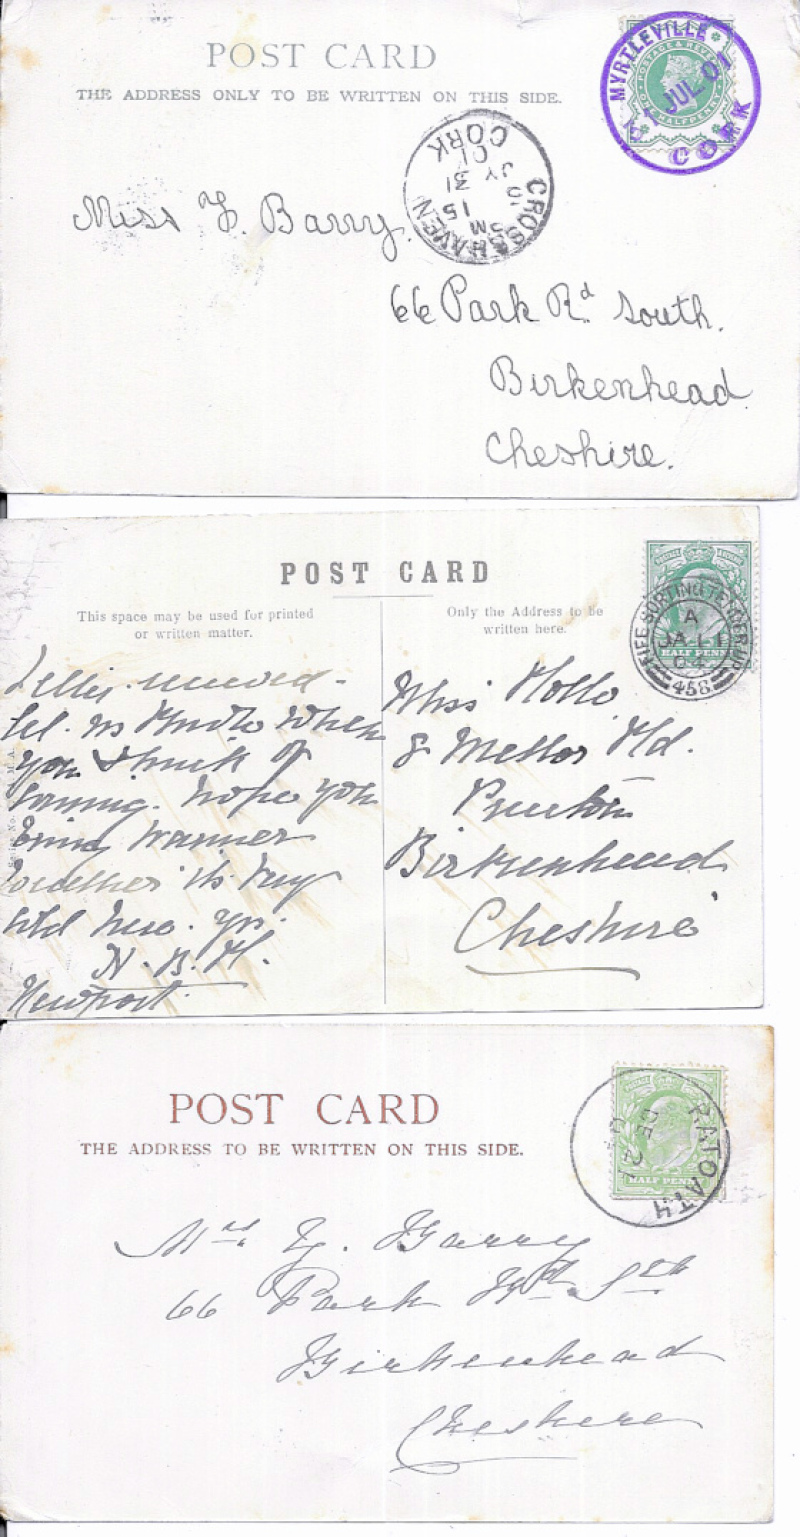 POST CARD
THE ADDRESS ONLY TO BE WRITTEN ON THIS SIDE.
MYRTLEVILLE
31 JUL 01
CORK
CROSSHAVEN
5 15 PM
JY 31
01
CORK
Miss F. Barry.
66 Park Rd South.
Birkenhead
Cheshire.
POST CARD
This space may be used for printed
or written matter.
Only the Address to be
written here.
HALF PENNY
FIFE SORTING TENDER UP
A
JA 11
04
458
Letter received -
let us know when
you think of
coming. hope you
bring warmer
weather its very
cold now. yrs.
N. B. H.
Newport.
Miss
8 Mellor Rd.
Prenton
Birkenhead
Cheshire
POST CARD
THE ADDRESS TO BE WRITTEN ON THIS SIDE.
HALF PENNY
RATOATH
DE 21
Mrs G. Barry
66 Park Rd. Sth
Birkenhead
Cheshire